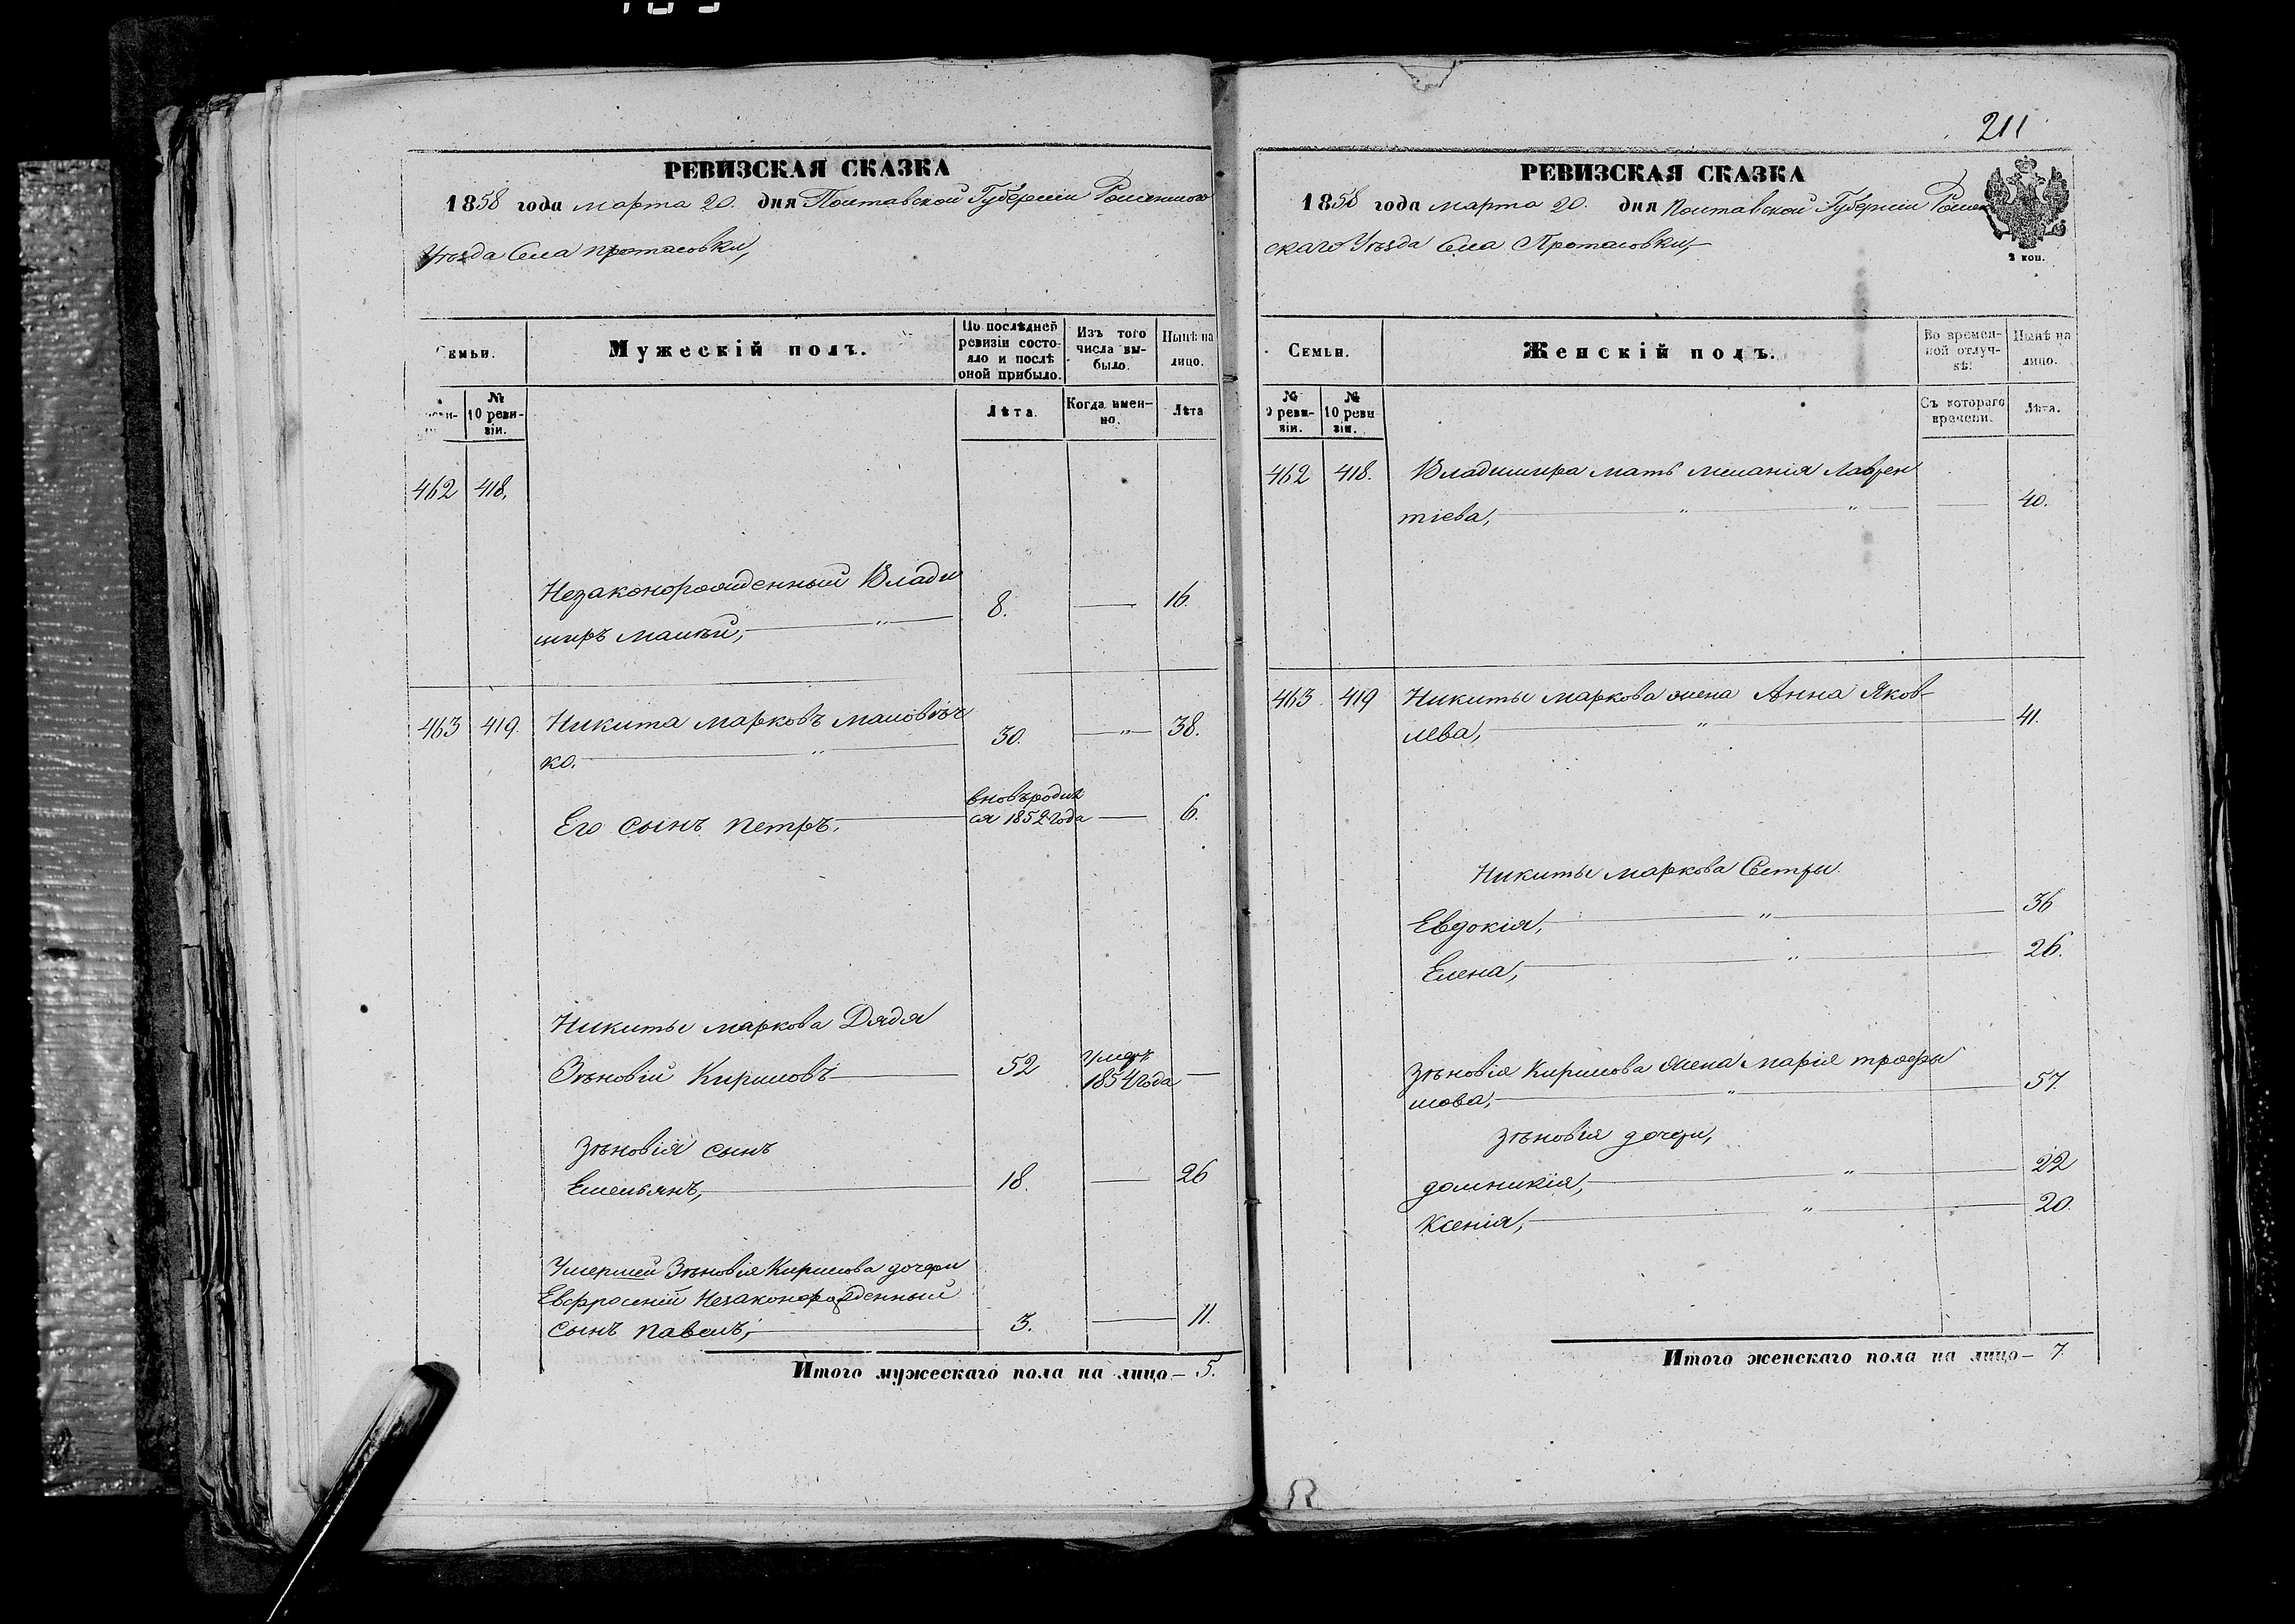 РЕВИЗСКАЯ СКАЗКА
1858 года марта 20. дня Полтавской Губерніи Роменскаго
Уѣзда Села Протасовки,
Семьи.
Мужескій полъ.
По послѣдней ревизіи состояло и послѣ оной прибыло.
Изъ того числа выбыло.
Нынѣ на лицо.
№ 10 ревизіи.
Лѣта.
Когда именно.
Лѣта
462 418.
Незаконорожденный Влади
миръ 8. 16.
463 419. Никита Марковъ
ко. 30. 38.
Его сынъ Петръ. вновь родил
ся 1852 года 6.
Никиты Маркова Дядя
Зѣновій Кириловъ 52 умеръ
1854 года
Зѣновія сынъ
Емельянъ, 18. 26
Умершей Зѣновія Кирилова дочери
Евфросиніи Незаконорожденный
сынъ Павелъ, 3. 11.
Итого мужескаго пола на лицо – 5.
211
РЕВИЗСКАЯ СКАЗКА
1858 года марта 20. дня Полтавской Губерніи Ромен
скаго Уѣзда Села Протасовки,
2 коп.
Семьи.
Женскій полъ.
Во временной отлучкѣ.
Нынѣ на лицо.
№ 9 ревизіи.
№ 10 ревизіи.
Съ котораго времени.
Лѣта.
462 418. Владимира мать Меланія Лаврен
тіева, 40.
463. 419 Никиты Маркова жена Анна Яков-
лева, 41.
Никиты Маркова Сестры
Евдокія, 36
Елена, 26.
Зѣновія Кирилова жена Марія Трофы
мова, 57.
Зѣновія дочери,
Домникія, 22
Ксенія, 20.
Итого женскаго пола на лицо – 7.